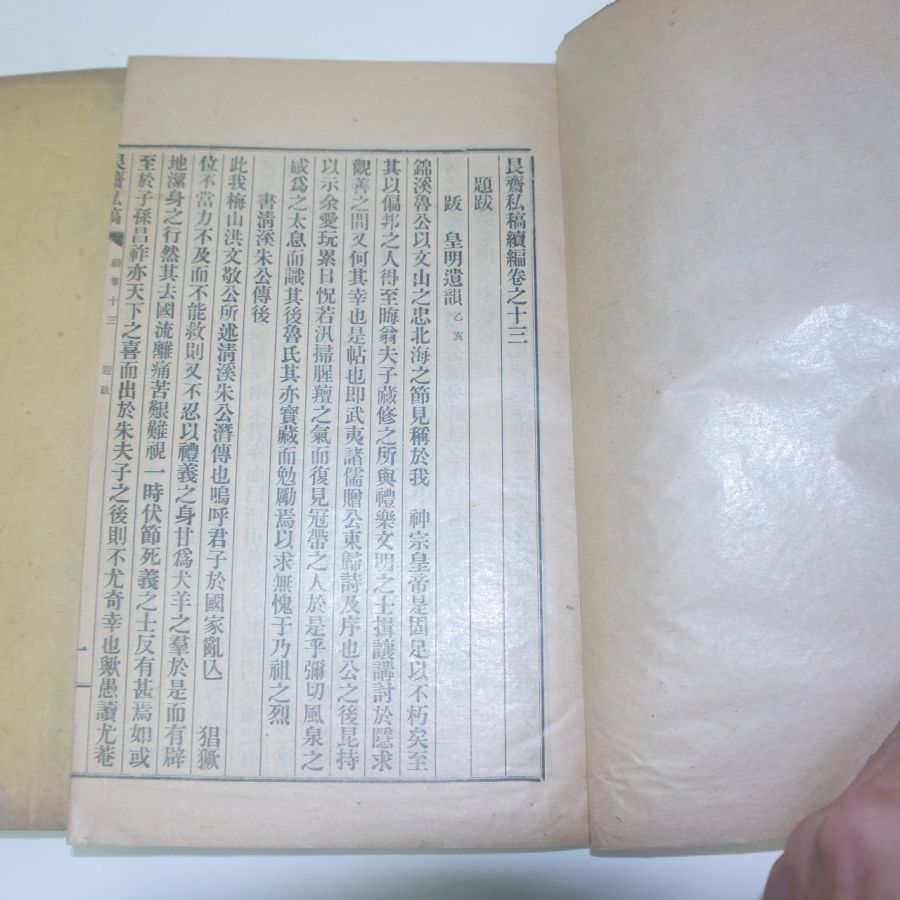 艮齋私稿續編卷之十三
題跋
跋 皇明遺韻 乙亥
錦溪魯公以文山之忠北海之節見稱於我 神宗皇帝是固足以不朽矣至
其以偏邦之人得至晦翁夫子藏修之所與禮樂文明之士揖讓講討於隱求
觀善之間又何其幸也是帖也即武夷諸儒贈公東歸詩及序也公之後昆持
以示余愛玩累日怳若汎掃腥羶之氣而復見冠帶之人於是乎彌切風泉之
感爲之太息而識其後魯氏其亦寶藏而勉勵焉以求無愧于乃祖之烈
書淸溪朱公傳後
此我梅山洪文敬公所述淸溪朱公潛傳也嗚呼君子於國家亂亾 猖獗
位不當力不及而不能救則又不忍以禮義之身甘爲犬羊之羣於是而有辟
地潔身之行然其去國流離痛苦艱難視一時伏節死義之士反有甚焉如或
至於子孫昌祚亦天下之喜而出於朱夫子之後則不尤奇幸也歟愚讀尤菴
艮齋私稿 續卷十三 題跋 一